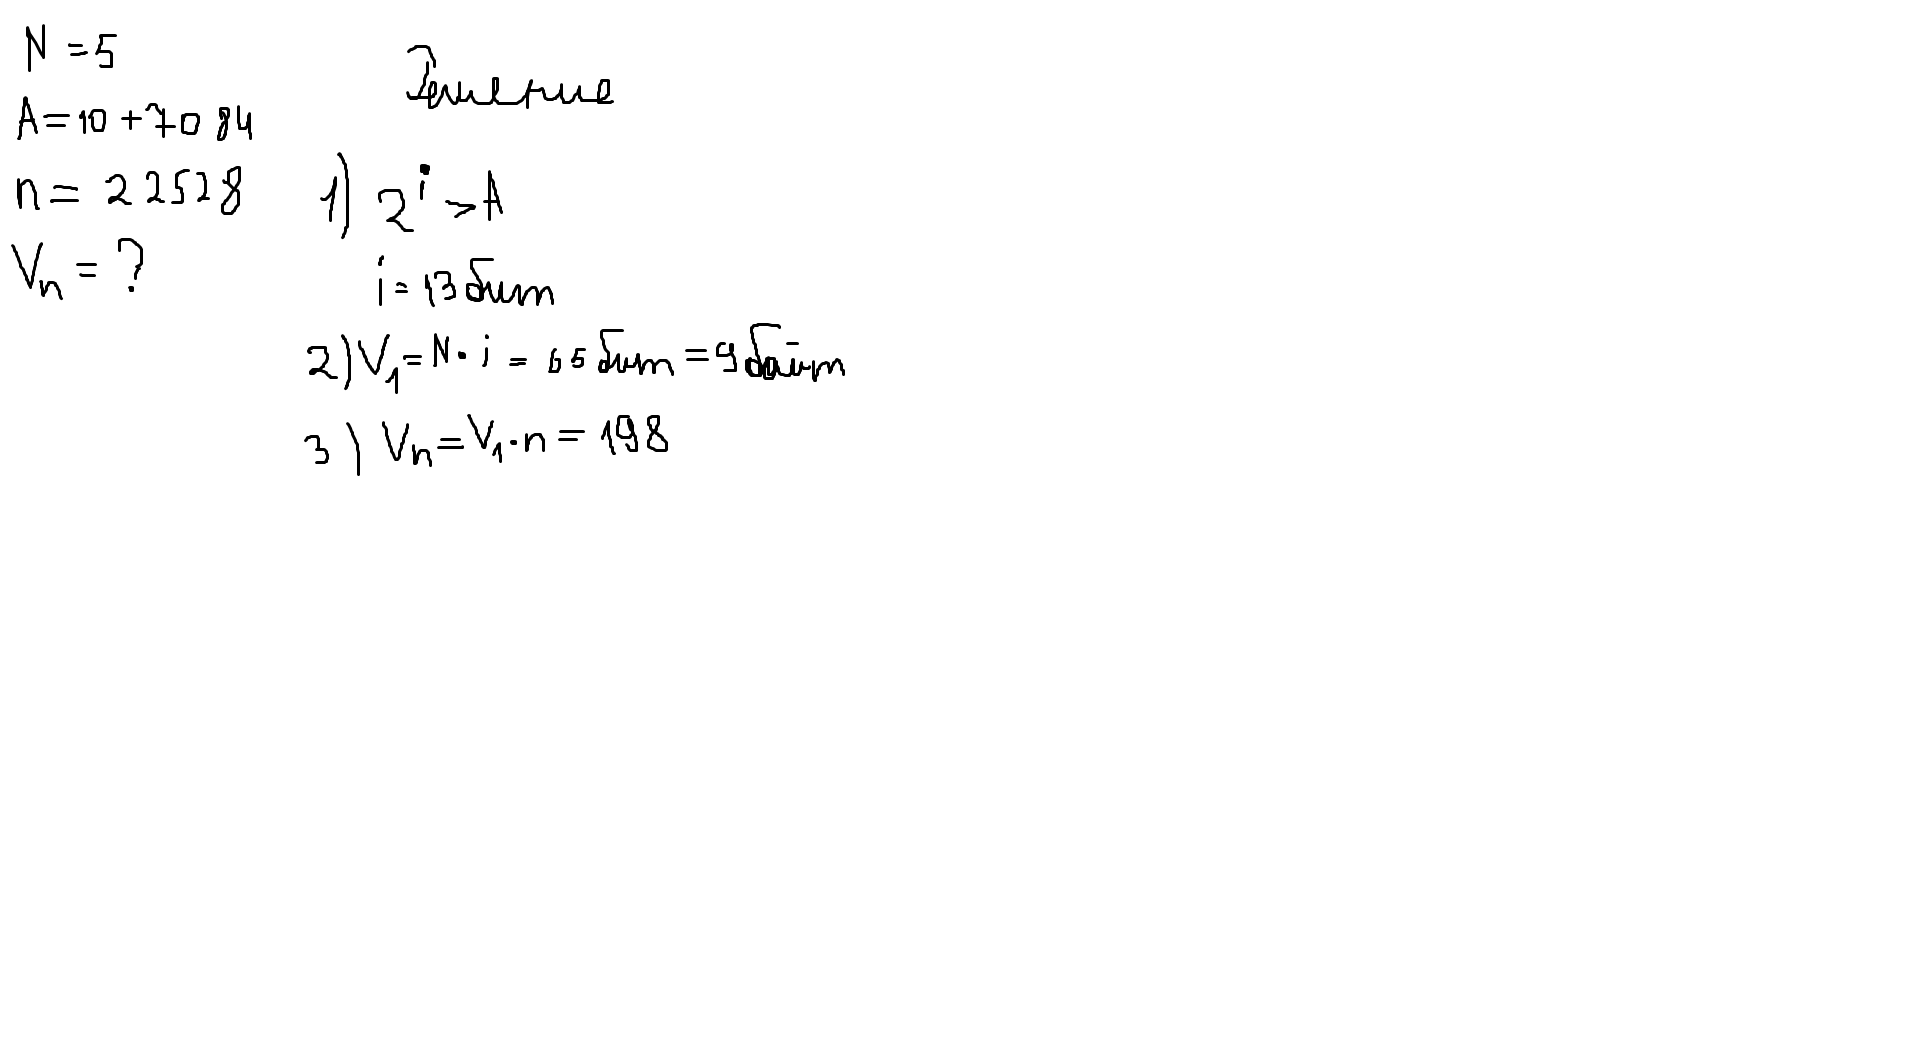 N = 5
A = 10 + 7084
n = 22528
Vn = ?
Решение
1) 2^i > A
i = 13 бит
2) V1 = N · i = 65 бит = 9 байт
3) Vn = V1 · n = 198